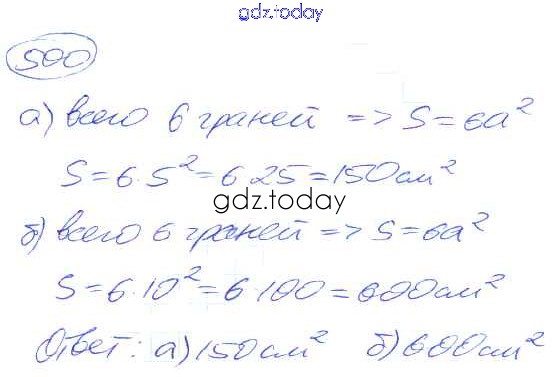 gdz.today
500
а) всего 6 граней => S=6a²
S=6·5²=6·25=150см²
gdz.today
б) всего 6 граней => S=6a²
S=6·10²=6·100=600см²
Ответ: а) 150см² б) 600см²